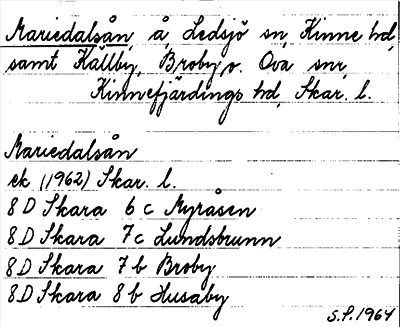 Mariedalsån, å, Ledsjö sn, Kinne hd,
samt Källby, Broby, o. Ova snr,
Kinnefjärdings hd, Skar. l.
Mariedalsån
ek (1962) Skar. l.
8D Skara 6c Myråsen
8D Skara 7c Lundsbrunn
8D Skara 7b Broby
8D Skara 8b Husaby
S.P. 1964